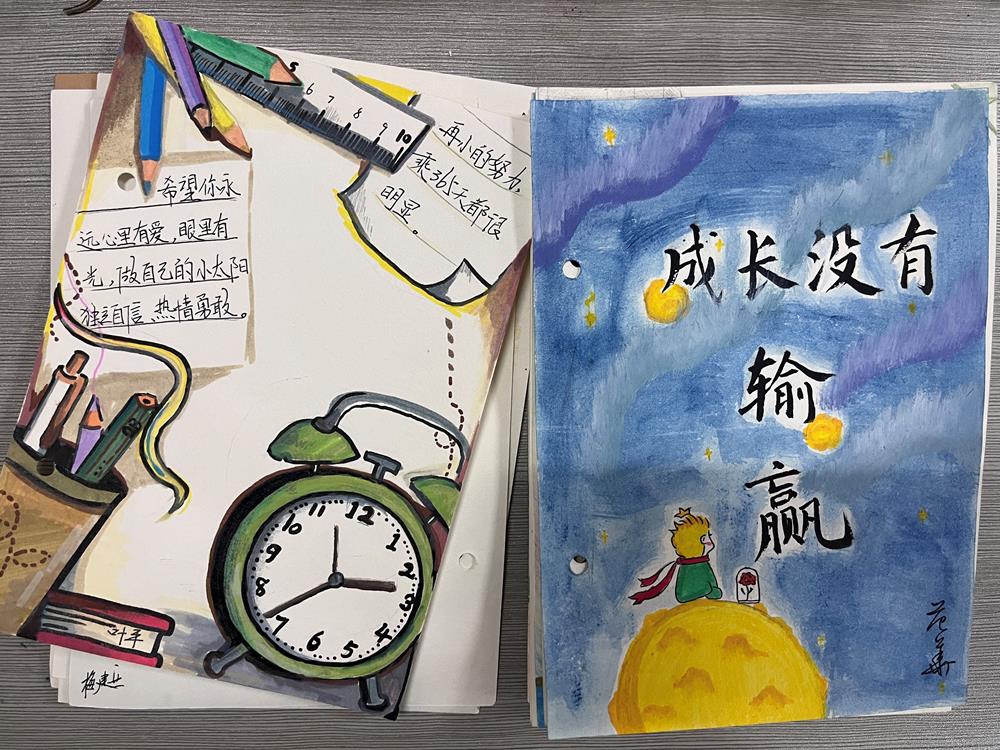 5 6 7 8 9 10
再小的努力,
乘365天都很
明显。
希望你永
远心里有爱,眼里有
光,做自己的小太阳
独立自信、热情勇敢。
12
11
1
10
2
9
3
8
4
7
5
6
叶平
成长没有
输
赢